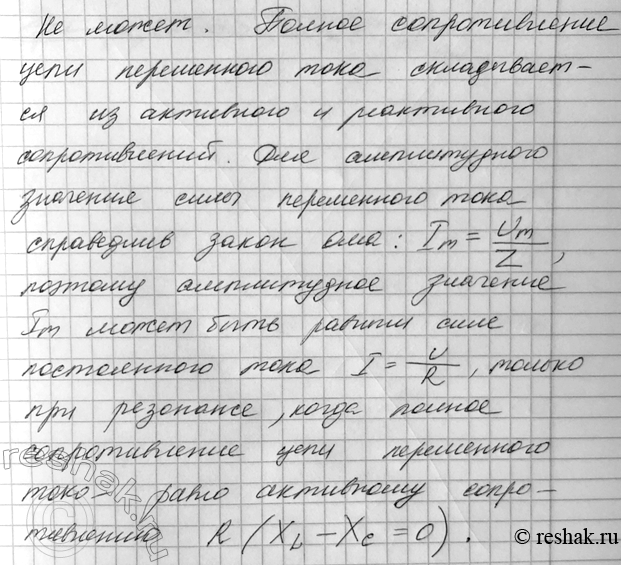 Не может. Полное сопротивление
цепи переменного тока складывает-
ся из активного и реактивного
сопротивлений. Для амплитудного
значение силы переменного тока
справедлив закон ома: Im = Um/Z,
поэтому амплитудное значение
Im может быть равным силе
постоянного тока I = U/R, только
при резонансе, когда полное
сопротивление цепи переменного
тока равно активному сопро-
тивлению R (XL - Xc = 0).
reshak.ru
© reshak.ru